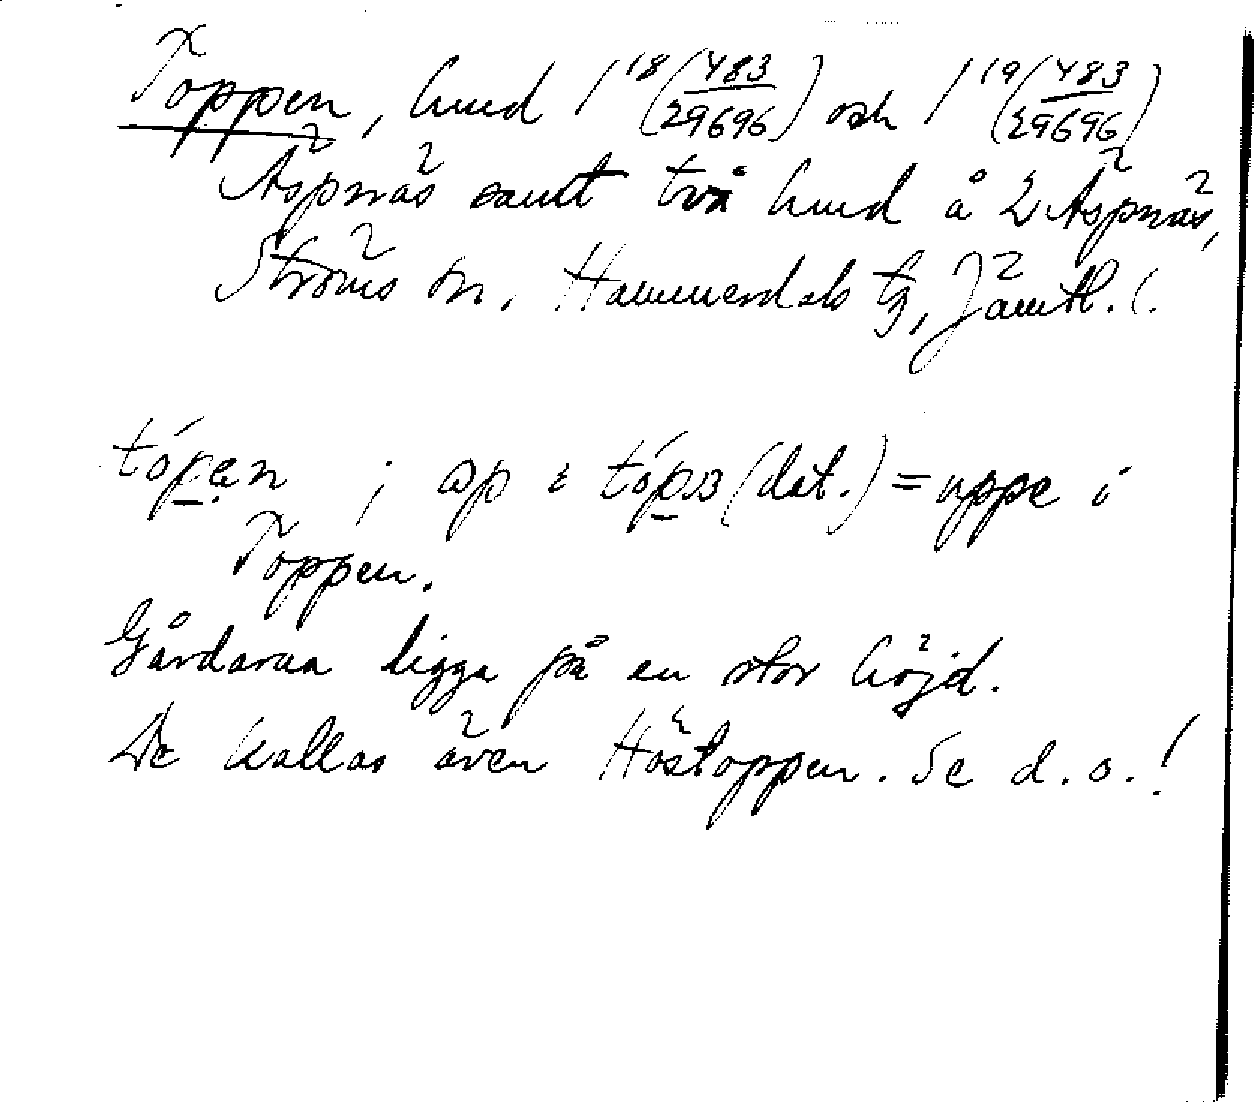 Toppen, hmd 1¹⁸(483/29696) och 1¹⁹(483/29696)
Äspnäs samt två hmd å 2 Äspnäs,
Ströms sn. Hammerdals tg, Jämtl. l.
tópen ; op i (dat.) = uppe i
Toppen.
Gårdarna ligga på en stor höjd.
De kallas även Höstoppen. Se d. o.!